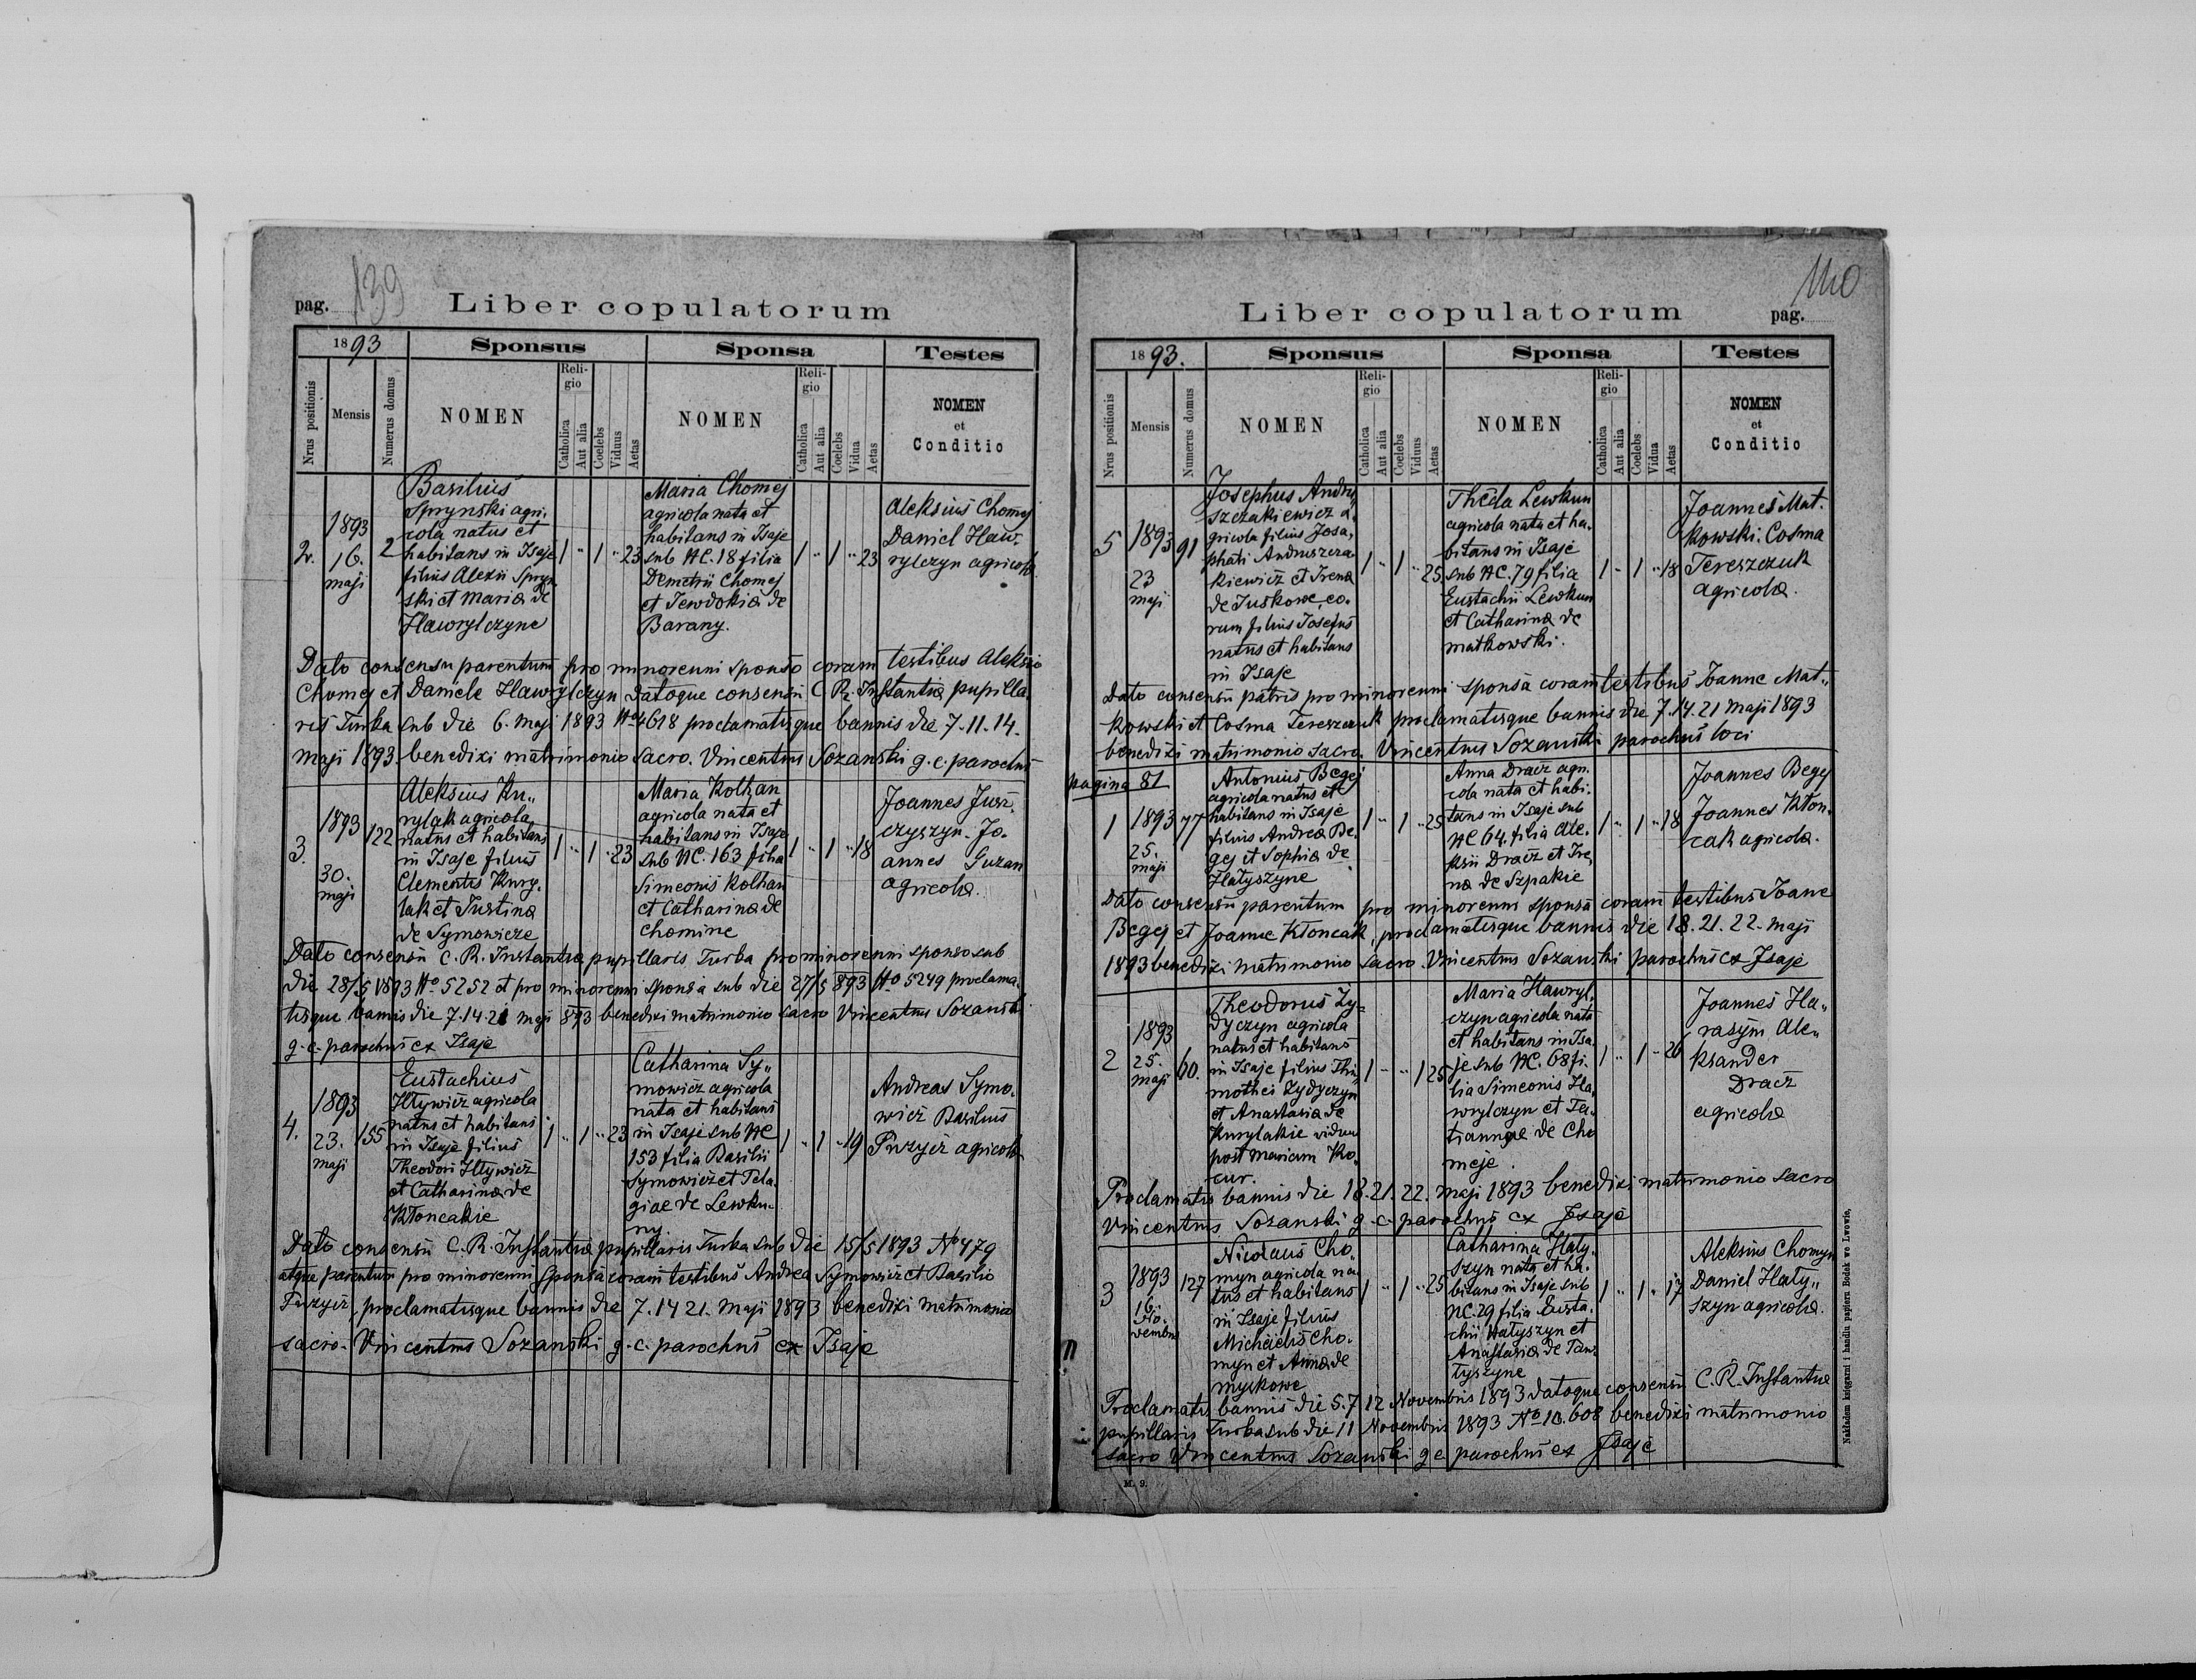 pag. 139
Liber copulatorum
1893
Sponsus
Sponsa
Testes
Nrus positionis
Mensis
Numerus domus
NOMEN
Religio
Catholica
Aut alia
Coelebs
Viduus
Aetas
NOMEN
Religio
Catholica
Aut alia
Coelebs
Vidua
Aetas
NOMEN
et
Conditio
2.
1893
16.
maji
2
Basilius
Sprynski agri-
cola natus et
habitans in Isaje
filius Alexii Spryn
ski et Maria de
Hawrylczyne
1 " 1 " 23
Maria Chomej
agricola nata et
habitans in Isaje
sub NC. 18 filia
Demetrii Chomej
et Jewdokia de
Barany.
1 " 1 " 23
Aleksius Chomej
Daniel Haw-
rylczyn agricola
Dato consensu parentum pro minorenni sponso coram testibus Aleksio
Chomej et Daniele Hawrylczyn datoque consensu C. R. Instantia pupilla
ris Turka sub die 6. maji 1893 No 4618 proclamatisque bannis die 7. 11. 14.
maji 1893 benedixi matrimonio sacro. Vincentius Sozanski g. c. parochus
3.
1893
30.
maji
122
Aleksius Ku"
rylak agricola
natus et habitans
in Isaje filius
Clementis Kury-
lak et Justina
de Symowicze
1 " 1 " 23
Maria Kolhan
agricola nata et
habitans in Isaje
sub NC. 163 filia
Simeonis Kolhan
et Catharina de
Chomine
1 " 1 " 18
Joannes Jusz-
czyszyn. Jo-
annes Guzan
agricola.
Dato consensu C. R. Instantia pupillaris Turka pro minorenni sponso sub
die 28/5 1893 No 5252 et pro minorenni sponsa sub die 27/5 893 No 5249 proclama-
tisque bannis die 7. 14. 21 maji 893 benedixi matrimonio sacro Vincentius Sozanski
g. c. parochus ex Isaje
4.
1893
23.
maji
155
Eustachius
Iltywicz agricola
natus et habitans
in Isaje filius
Theodori Iltywicz
et Catharina de
Kłoncakie
1 " 1 " 23
Catharina Sy"
mowicz agricola
nata et habitans
in Isaje sub NC
153 filia Basilii
Symowicz et Pela-
giae de Lewku-
ny.
1 " 1 " 19
Andreas Symo-
wicz Basilius
agricola
Dato consensu C. R. Instantia pupillaris Turka sub die 15/5 1893 No 479
atque parentum pro minorenni sponsa coram testibus Andrea Symowicz et Basilio
proclamatisque bannis die 7. 14 21. maji 1893 benedixi matrimonio
sacro. Vincentius Sozanski g. c. parochus ex Isaje
140
Liber copulatorum
pag.
1893.
Sponsus
Sponsa
Testes
Nrus positionis
Mensis
Numerus domus
NOMEN
Religio
Catholica
Aut alia
Coelebs
Viduus
Aetas
NOMEN
Religio
Catholica
Aut alia
Coelebs
Vidua
Aetas
NOMEN
et
Conditio
5
1893
23
maji
91
Josephus Andry
szczakiewicz a-
gricola filius Josa-
phati Andruszcza-
kiewicz et Irena
de Iuskowe, eo-
rum filius Josefus
natus et habitans
in Isaje
1 " 1 " 25
Thecla Lewkun
agricola nata et ha-
bitans in Isaje
sub NC. 79 filia
Eustachii Lewkun
et Catharina de
matkowski.
1 " 1 " 18
Joannes Mat-
kowski. Cosma
Tereszczuk
agricola.
Dato consensu patris pro minorenni sponsa coram testibus Joanne Mat"
kowski et Cosma Tereszczuk proclamatisque bannis die 7. 14. 21 maji 1893
benedixi matrimonio sacro. Vincentius Sozanski parochus loci
pagina 81
1
1893
25.
maji
77
Antonius Begej
agricola natus et
habitans in Isaje
filius Andrea Be-
gej et Sophia de
Hałyszyne
1 " 1 " 25
Anna Dracz agri-
cola nata et habi-
tans in Isaje sub
NC 64. filia Ale-
ksii Dracz et Ire-
na de Szpakie
1 " 1 " 18
Joannes Begej
Joannes Kłon-
cak agricola.
Dato consensu parentum pro minorenni sponsa coram testibus Joane
Begej et Joanne Kłoncak, proclamatisque bannis die 18. 21. 22. maji
1893 benedixi matrimonio sacro. Vincentius Sozanski parochus ex Isaje
2
1893
25.
maji
60.
Theodorus Zy-
dyczyn agricola
natus et habitans
in Isaje filius Thi-
mothei Zydyczyn
et Anastasia de
Kurylakie viduus
post mariam Ko-
cur.
1 - " 1 25
Maria Hawryl-
czyn agricola nata
et habitans in Isa-
je sub NC. 68 fi-
lia Simeonis Ha-
wrylczyn et Ta-
tiannae de Cho
meje.
1 " 1 " 26
Joannes Ha"
rasym Ale"
ksander
Dracz
agricola
Proclamatis bannis die 18. 21. 22. maji 1893 benedixi matrimonio sacro
Vincentius Sozanski g. c. parochus ex Isaje
3
1893
16.
No-
vembris
127
Nicolaus Cho-
myn agricola na-
tus et habitans
in Isaje filius
Michaelis Cho-
myn et Anna de
myskowe
1 " 1 " 25
Catharina Hały-
szyn nata et ha-
bitans in Isaje sub
NC. 29 filia Eusta-
chii Hałyszyn et
Anastasia de Paw-
łyszyne
1 " 1 " 17
Aleksius Chomyn
Daniel Hały"
szyn agricola.
Proclamatis bannis die 5. 7 12 Novembris 1893 datoque consensu C. R. Instantia
pupillaris Turka sub die 11 Novembris 1893 No 10.608 benedixi matrimonio
sacro Vincentius Sozanski g c parochus ex Isaje
M. 9.
Nakładem księgarni i handlu papieru Bodek we Lwowie.